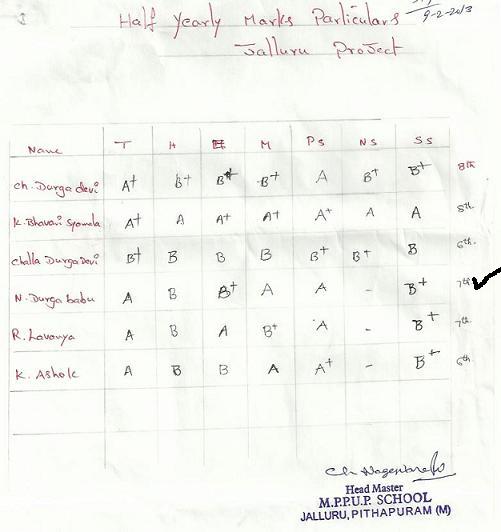 Half Yearly Marks Particulars
9-2-2013
Jalluru Project
Name T H E M Ps NS SS
ch. Durga devi A+ B+ B+ B+ A B+ B+ 8th
K. Bhavani Syamala A+ A A+ A+ A+ A A 8th
challa Durga Devi B+ B B B B+ B+ B 6th
N. Durga babu A B B+ A A - B+ 7th
R. Lavanya A B A B+ A - B+ 7th
K. Ashok A B B A A+ - B+ 6th
Ch Nageswara
Head Master
M.P.P.U.P. SCHOOL
JALLURU, PITHAPURAM (M)